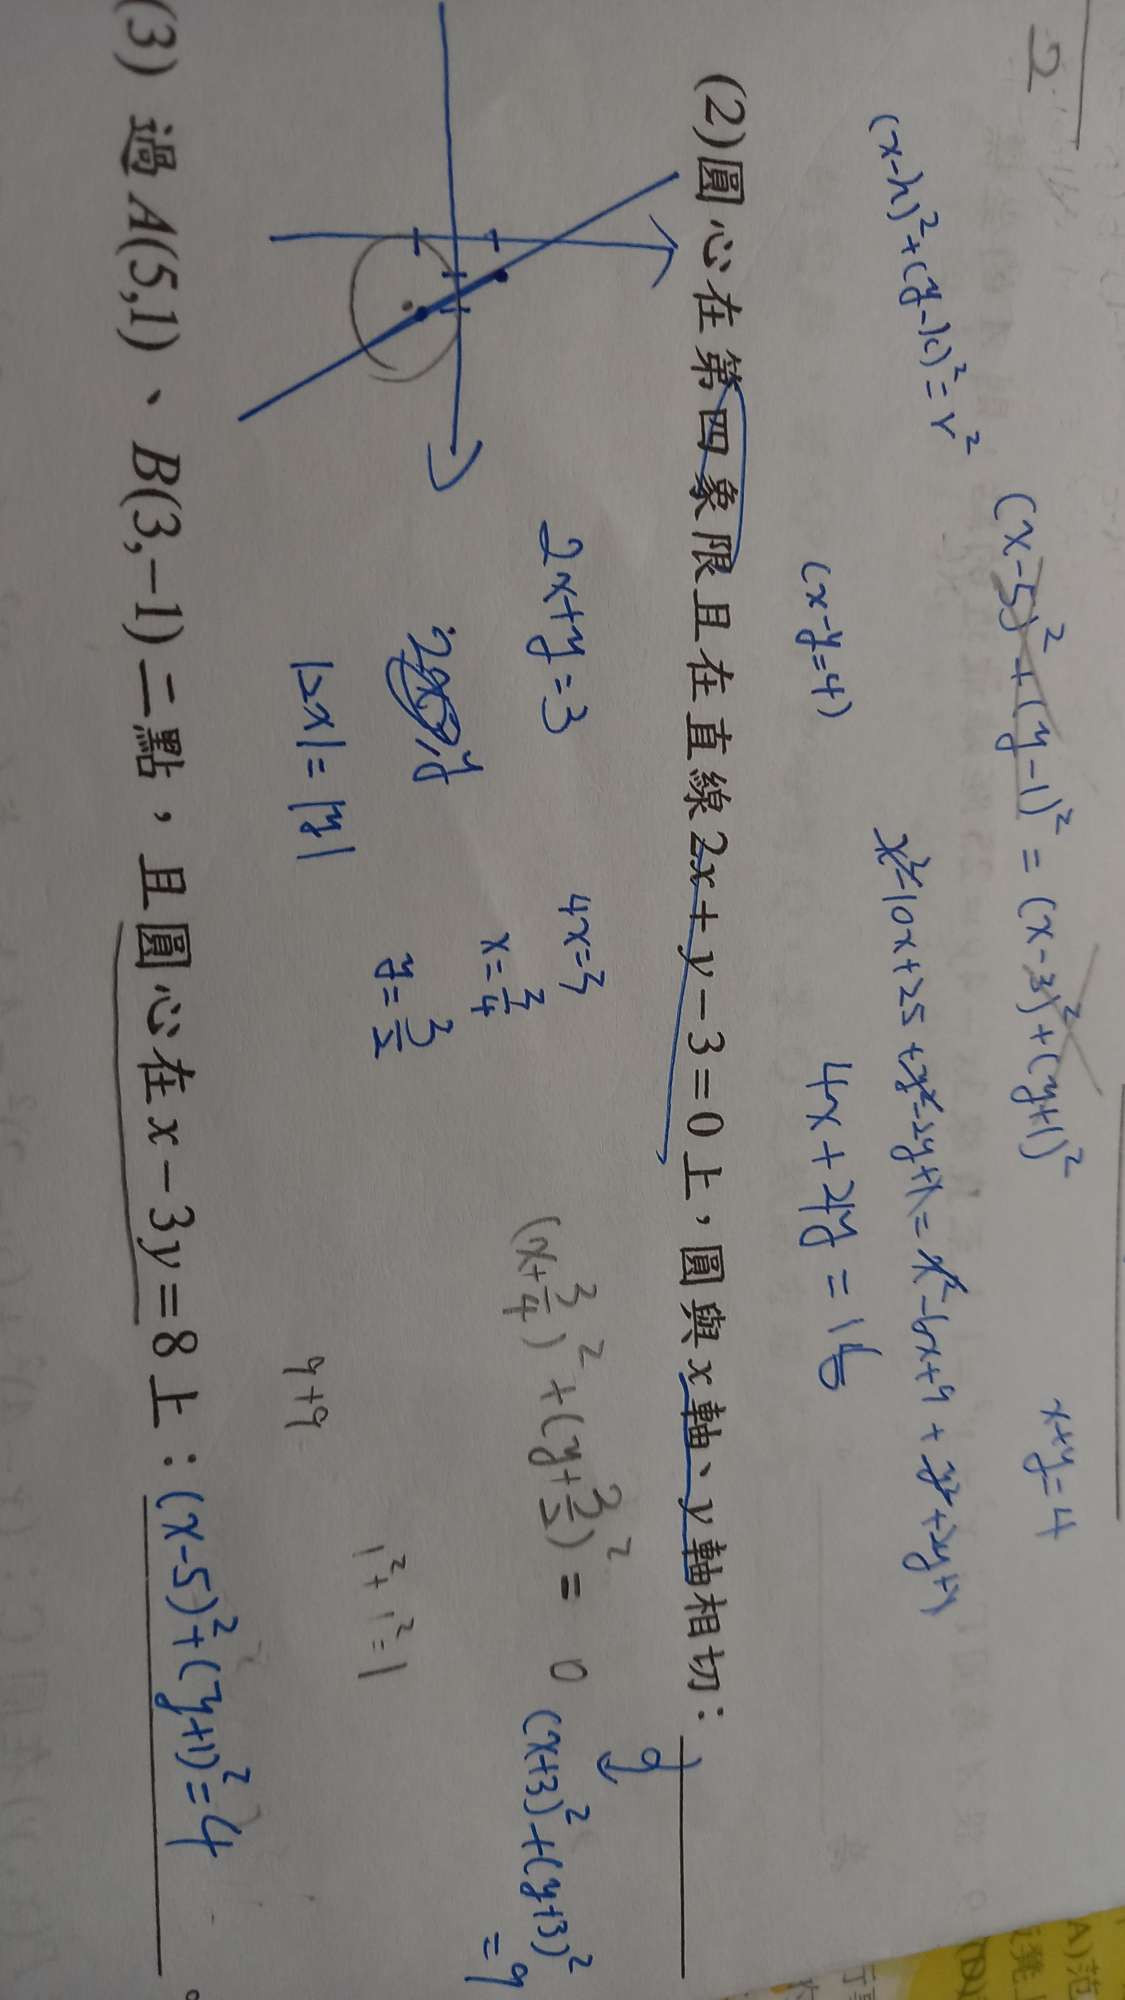 2
(x-5)²+(y-1)² = (x-3)²+(y+1)²
x+y=4
(x-h)²+(y-k)²=r²
x²-10x+25+y²-2y+1=x²-6x+9+y²+2y+1
(x-y=4)
4x+4y=16
(2)圓心在第四象限且在直線2x+y-3=0上，圓與x軸、y軸相切：
2x+y=3
4x=3
x=3/4
y=3/2
|2x|=|y|
(x+3/4)²+(y+3/2)²=0
(x+3)²+(y+3)²
=9
1²+1²=1
9+9
(3) 過A(5,1)、B(3,-1)二點，且圓心在x-3y=8上：(x-5)²+(y+1)²=4